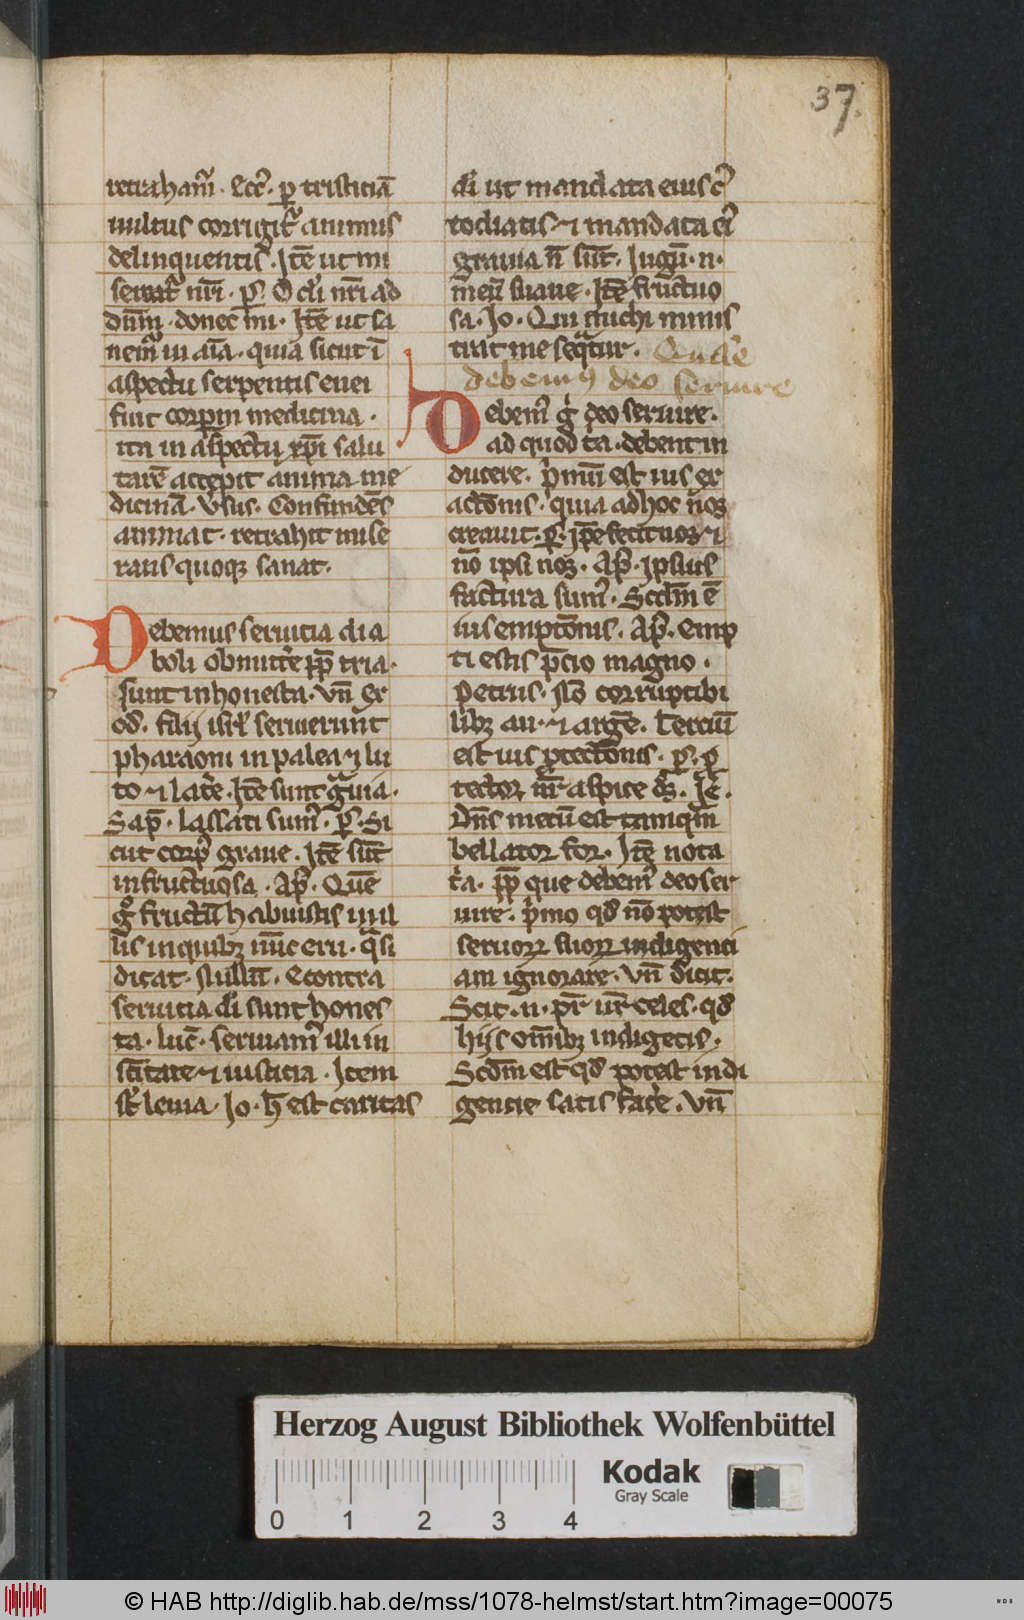 37.
retraham̄. Ecc̄. ꝑ tristiciā
uultus corrigit᷑ animus
delinquentis. Itē ut mi
sereat᷑ nr̄i. ps̄. Oc̄li nr̄i ad
dn̄m̄. donec mi. Itē ut sa
nem᷒ in aīa. quia sicut ī
aspectu serpentis enei
fiuit corꝑm medicina.
ita in aspectu xp̄i salu
tarē accepit anima me
dicinā. vsus. Confundēs
animat. retrahit mise
ratus quoqꝫ sanat.
Debemus seruitia dia
boli obmitte᷑ ꝓp̄ tria.
sunt inhonesta. vn̄ ex
od̄. filij isrl̄ seruierunt
pharaoni in palea ⁊ lu
to ⁊ late᷑. Itē sunt gͣuia.
Sap̄. lassati sum᷒. ps̄. Si
cut corp᷒ graue. Itē sūt
infructuosa. Ap̄. Quē
gͦ fructū habuistis in il
lis in quibꝫ nūc eru. qͣsi
dicat. nullū. Econtra
seruitia di᷑ sunt hones
ta. luc̄. seruiam᷒ illi in
sc̄itate ⁊ iusticia. Item
st᷑ leuia. Io. h̄ est caritas
di᷑ ut mandata eius c᷒
todiatis ⁊ mandata ei᷒
grauia n̄ sūt. Iugū. n.
meū suaue. Itē fructuo
sa. Io. Qui michi minis
trat me seqͣtur. Qual᷑e
debem᷒ deo seruire
Debem᷒ gͦ deo seruire.
ad quod tͥa. debent in
ducere. pͥmū est ius cr
actōnis. quia ad hoc nos
creauit. ps̄. ip̄e fecit nos ⁊
nō ipsi nos. Ap̄. ipsius
factura sum᷒. Scd̄m ē
ius emptōnis. Ap̄. Emp
ti estis p̄cio magno.
Petrus. nō corruptibi
libꝫ au. ⁊ argē. Terciū
est ius ꝓtectōnis. ps̄. ꝓ
tector nr̄ aspice ds̄. Ie᷑.
Dn̄s mecū est tamqͣm
bellator for. Itē nota
tͥa. ꝓp̄ que debem᷒ deo ser
uire. pͥmo qd̄ nō potest
seruorꝝ suorꝝ indigenci
am ignorare. vn̄ dicit.
Scit. n. pr̄ ur̄ celes. qd̄
hijs om̄ibꝫ indigetis.
Scd̄m est qd̄ potest indi
gencie satis face᷑. vn̄
Herzog August Bibliothek Wolfenbüttel
Kodak
Gray Scale
0 1 2 3 4
© HAB http://diglib.hab.de/mss/1078-helmst/start.htm?image=00075